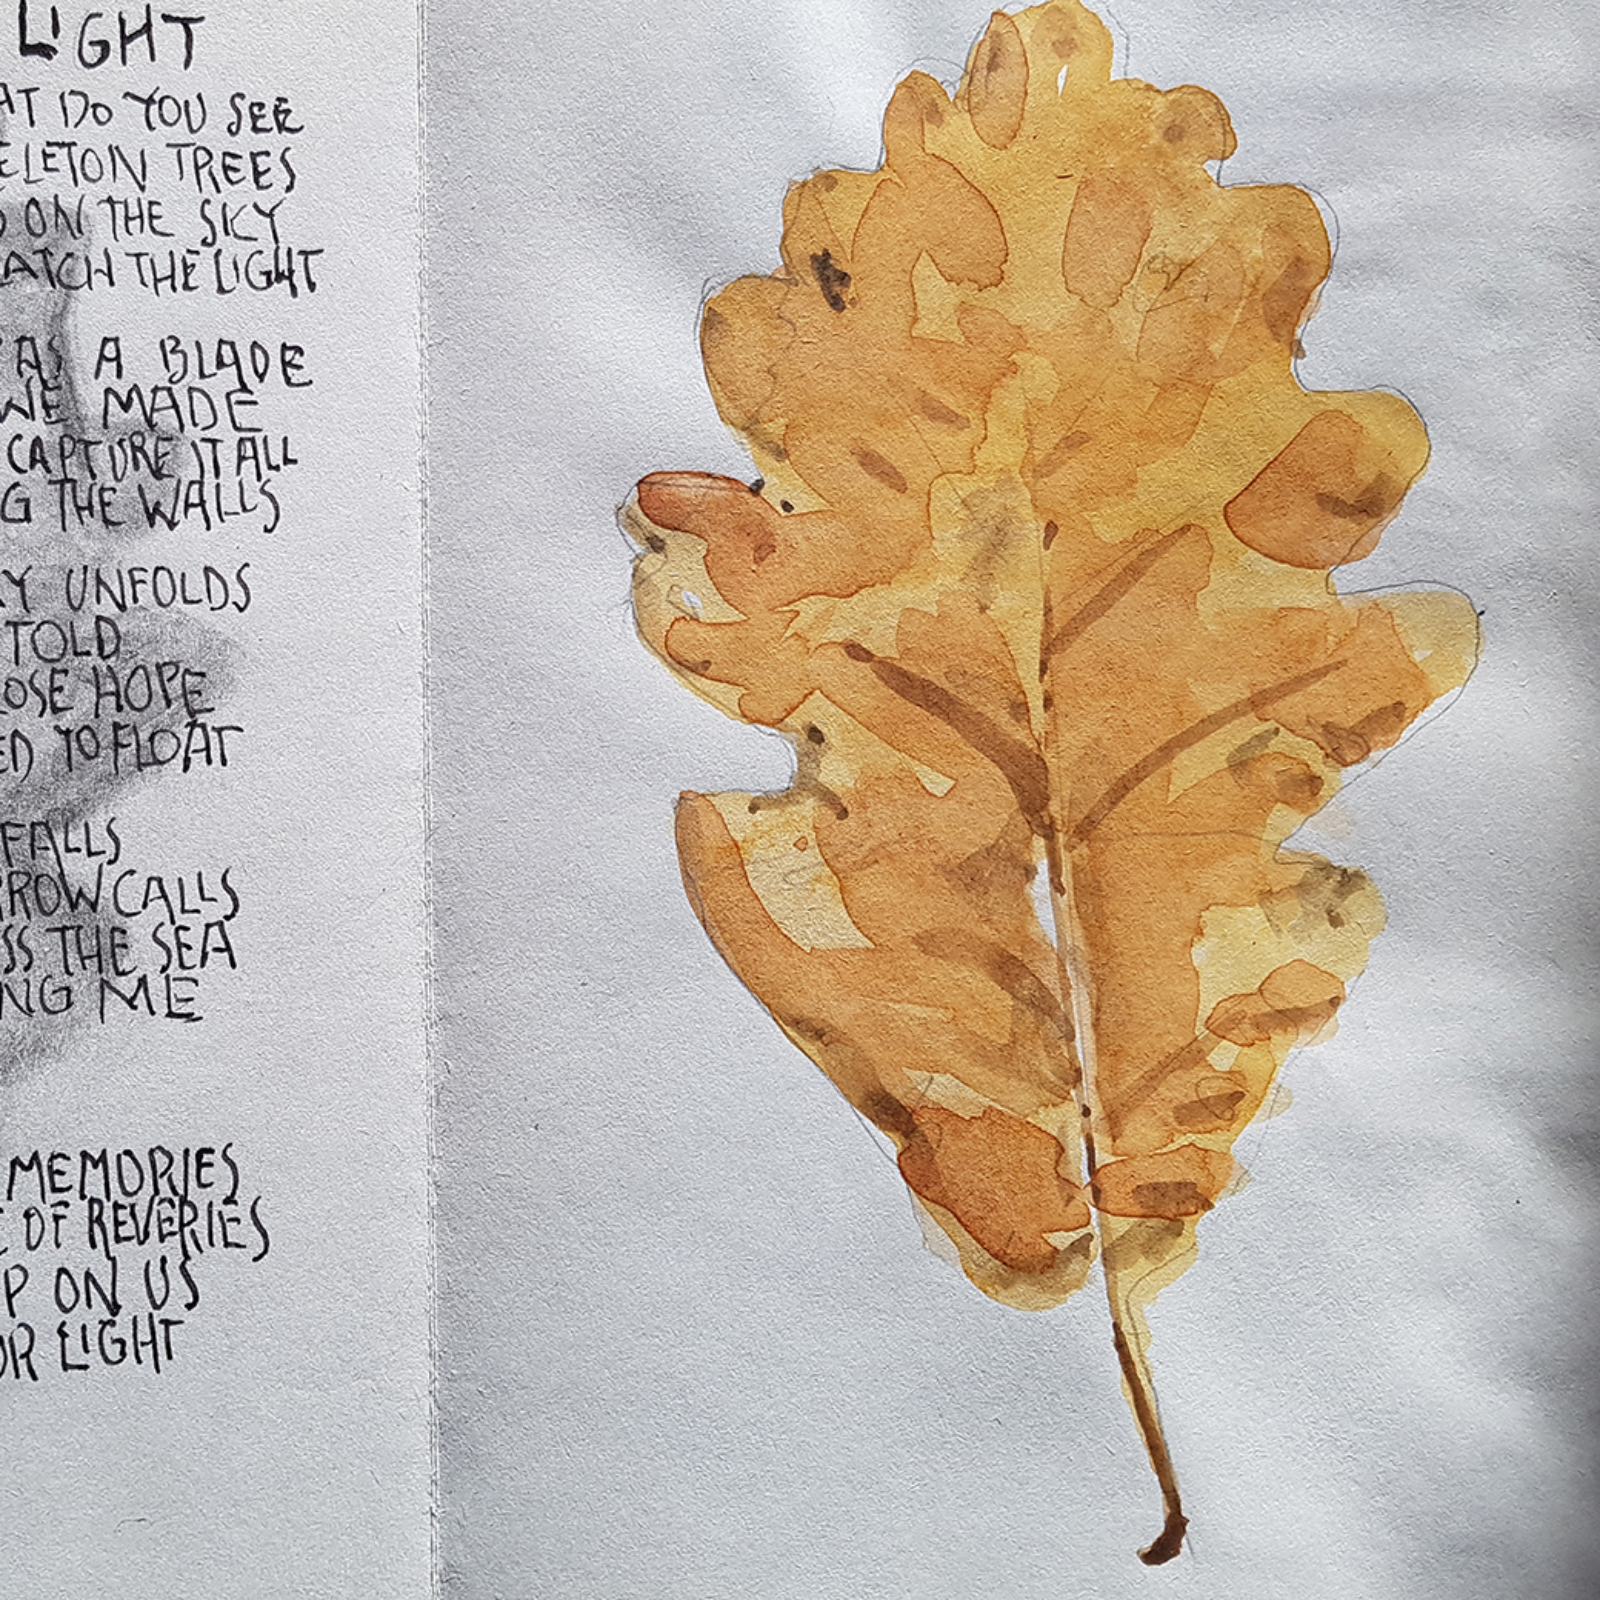 LIGHT
AT DO YOU SEE
ELETON TREES
ON THE SKY
ATCH THE LIGHT
AS A BLADE
WE MADE
CAPTURE IT ALL
G THE WALLS
Y UNFOLDS
TOLD
OSE HOPE
ED TO FLOAT
FALLS
RROW CALLS
SS THE SEA
NG ME
MEMORIES
E OF REVERIES
P ON US
OR LIGHT